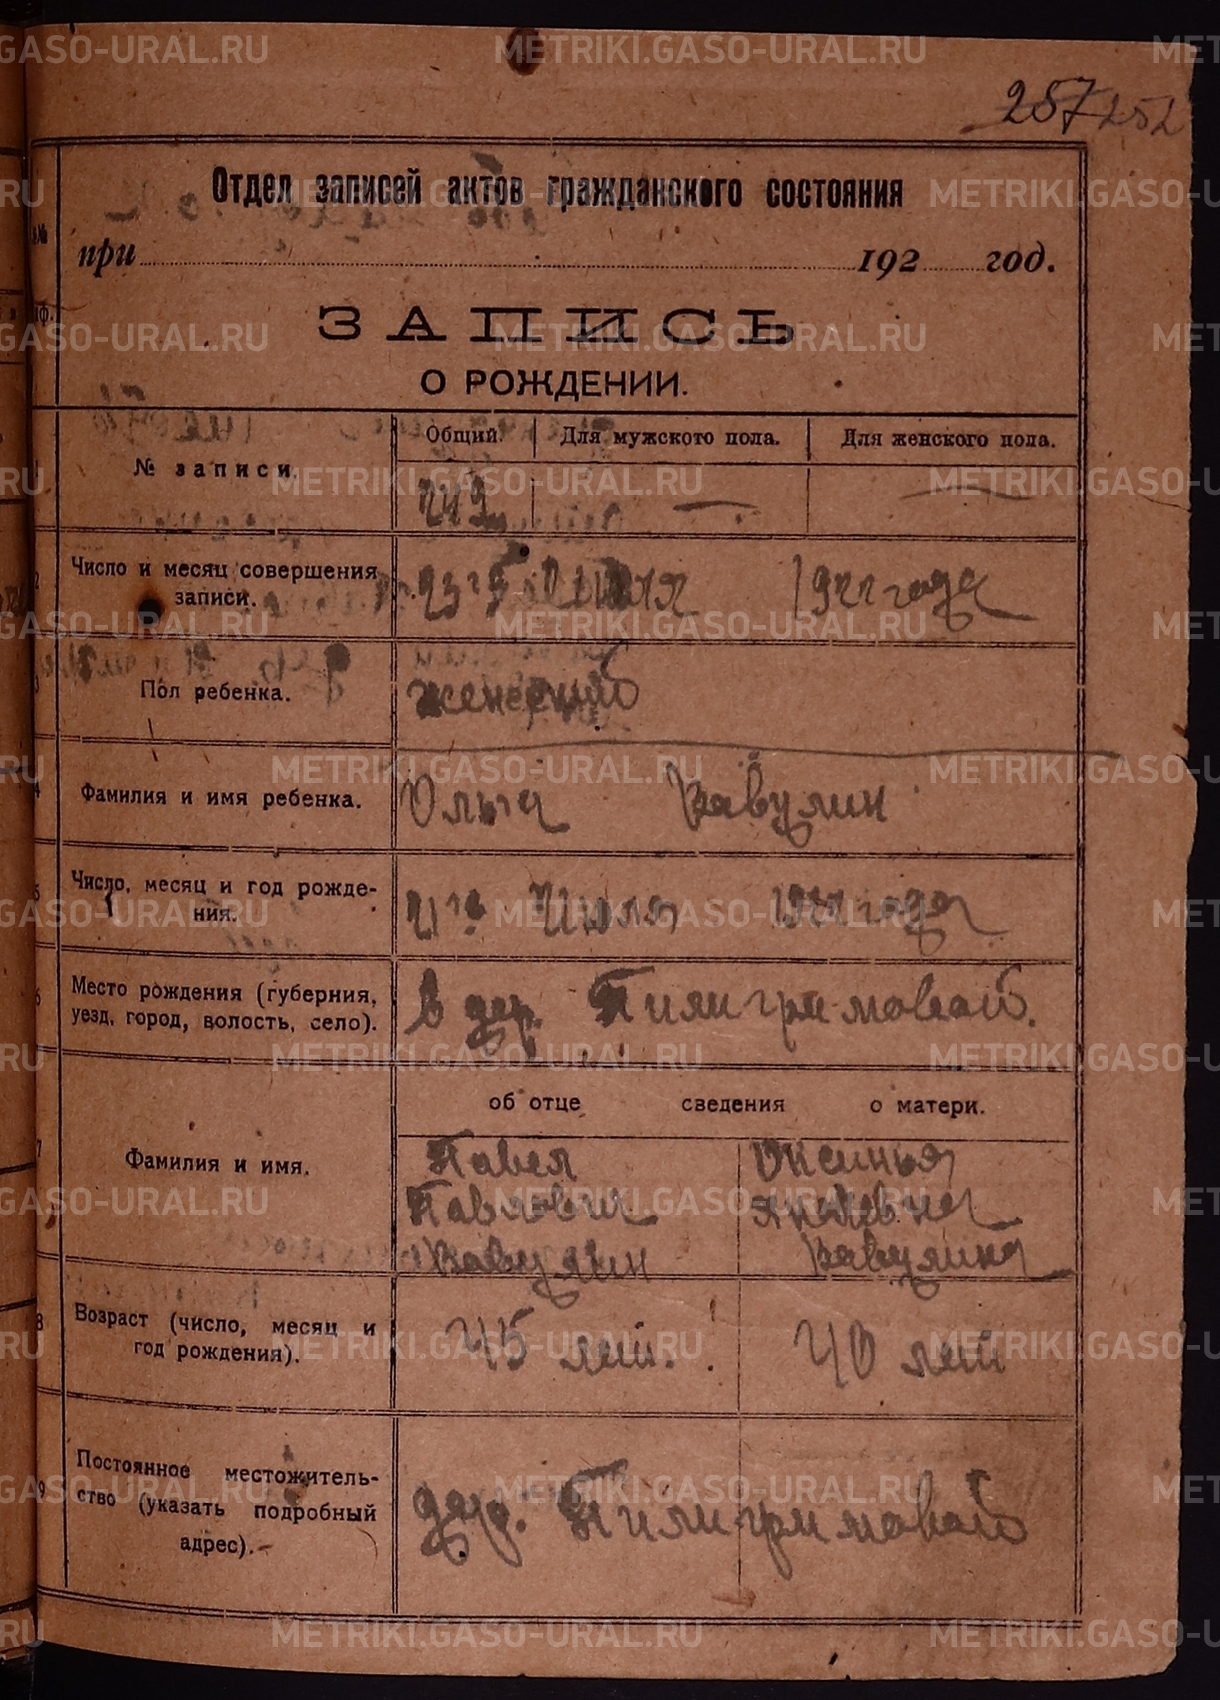 257 252
Отдел записей актов гражданского состояния
при 192 год.
ЗАПИСЬ
О РОЖДЕНИИ.
№ записи.
Общий
Для мужского пола.
Для женского пола.
Число и месяц совершения
записи.
23го 1922 года
Пол ребенка.
женский
Фамилия и имя ребенка.
Ольга Вавулин
Число, месяц и год рожде-
ния.
21го Июля 1922 года
Место рождения (губерния,
уезд, город, волость, село).
в дер. Пилигримовой.
об отце сведения о матери.
Фамилия и имя.
Павел
Павлович
Вавулин
Оксинья
Яковлевна
Вавулина
Возраст (число, месяц и
год рождения).
45 лет.
40 лет
Постоянное местожитель-
ство (указать подробный
адрес).
дер. Пилигримовой
METRIKI.GASO-URAL.RU